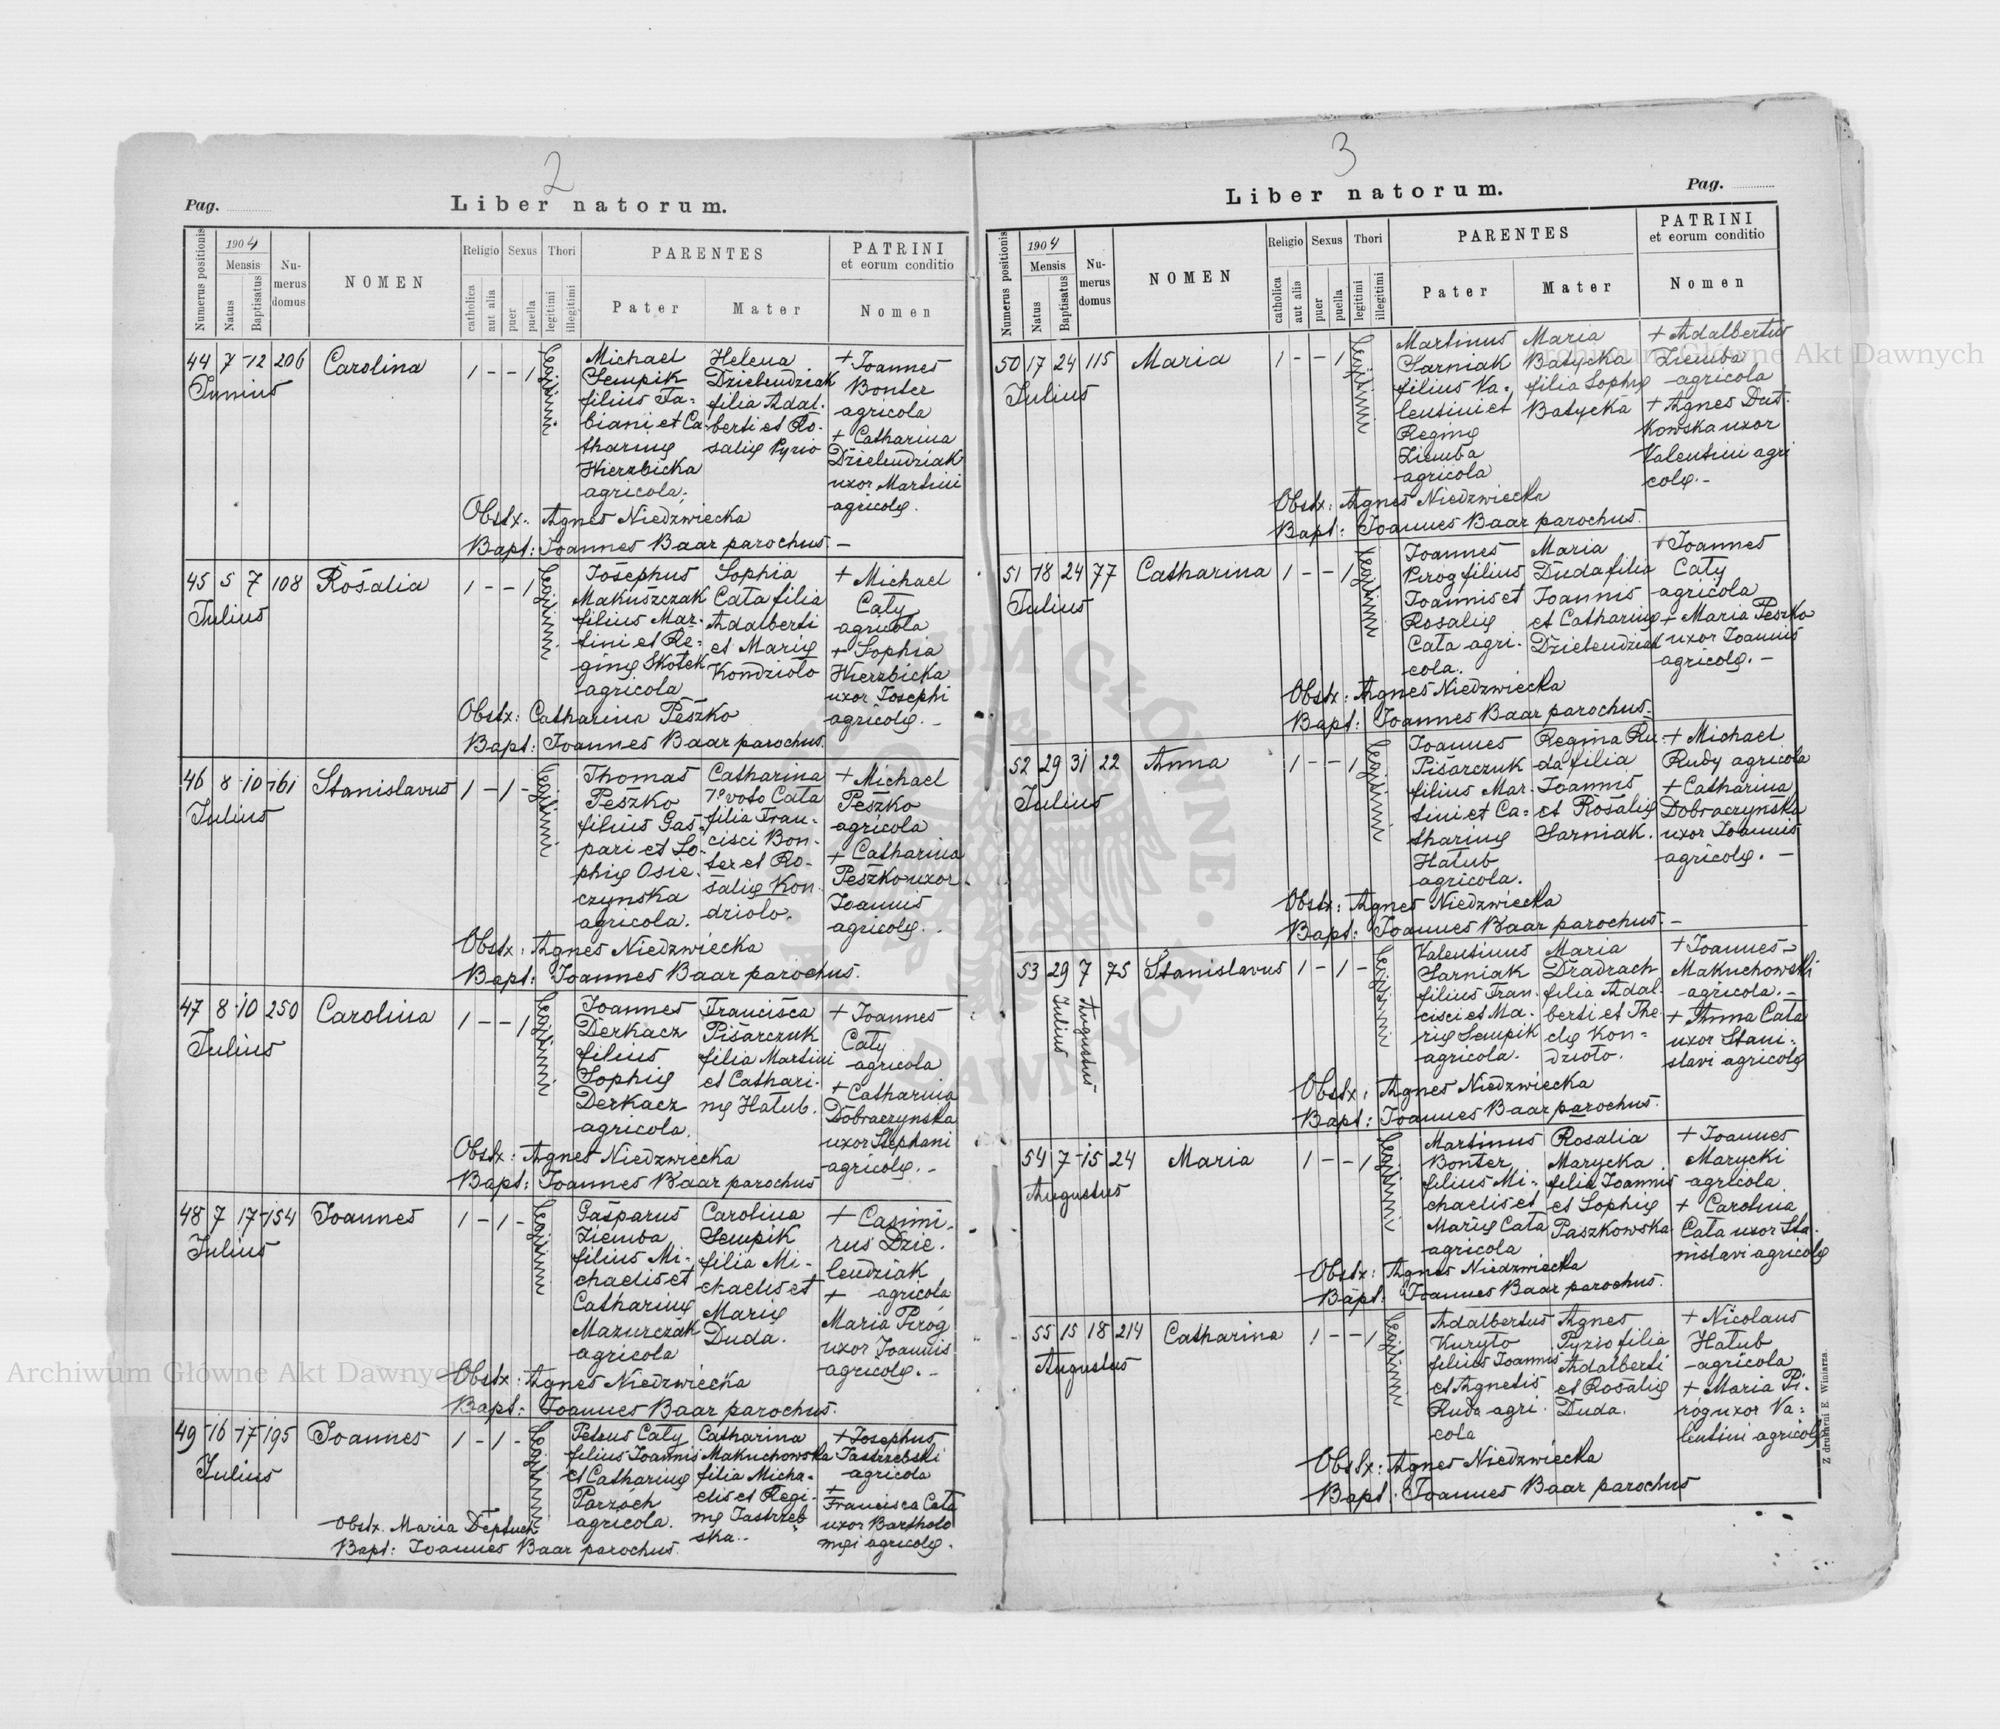 2
Pag.
Liber natorum.
Numerus positionis
1904
Mensis
Natus
Baptisatus
Nu-
merus
domus
NOMEN
Religio
catholica
aut alia
Sexus
puer
puella
Thori
legitimi
illegitimi
PARENTES
Pater
Mater
PATRINI
et eorum conditio
Nomen
44 7 12 206 Carolina 1 - - 1 legitimi
Junius
Michael
Sempik
filius Fa-
biani et Ca-
tharinę
Wierzbicka
agricola.
Helena
Dzielendziak
filia Adal-
berti et Ro-
salię Pyrio
+ Joannes
Bonter
agricola
+ Catharina
Dzielendziak
uxor Martini
agricolę.
Obstx: Agnes Niedzwiecka
Bapt: Joannes Baar parochus. -
45 5 7 108 Rosalia 1 - - 1 legitimi
Julius
Josephus
Makuszczak
filius Mar-
tini et Re-
ginę Skotek
agricola
Sophia
Cała filia
Adalberti
et Marię
Kondzioło
+ Michael
Cały
agricola
+ Sophia
Wierzbicka
uxor Josephi
agricolę. -
Obstx: Catharina Peszko
Bapt: Joannes Baar parochus.
46 8 10 161 Stanislavus 1 - 1 - legitimi
Julius
Thomas
Peszko
filius Gas-
pari et So-
phię Osie-
czynska
agricola.
Catharina
1º voto Cała
filia Fran-
cisci Bon-
ter et Ro-
salię Kon-
dzioło.
+ Michael
Peszko
agricola
+ Catharina
Peszko uxor
Joannis
agricolę. -
Obstx: Agnes Niedzwiecka
Bapt: Joannes Baar parochus.
47 8 10 250 Carolina 1 - - 1 legitimi
Julius
Joannes
Derkacz
filius
Sophię
Derkacz
agricola.
Francisca
Pisarczuk
filia Martini
et Cathari-
nę Hałub.
+ Joannes
Cały
agricola
+ Catharina
Dobraczynska
uxor Stephani
agricolę. -
Obstx: Agnes Niedzwiecka
Bapt: Joannes Baar parochus
48 7 17 154 Joannes 1 - 1 - legitimi
Julius
Gasparus
Ziemba
filius Mi-
chaelis et
Catharinę
Mazurczak
agricola
Carolina
Sempik
filia Mi-
chaelis et
Marię
Duda.
+ Casimi-
rus Dzie-
lendziak
+ agricola
Maria Piróg
uxor Joannis
agricolę. -
Obstx: Agnes Niedzwiecka
Bapt: Joannes Baar parochus.
49 16 17 195 Joannes 1 - 1 - legitimi
Julius
Petrus Cały
filius Joannis
et Catharinę
Parzóch
agricola.
Catharina
Makuchowska
filia Micha-
elis et Regi-
nę Jastrzeb
ska. -
+ Josephus
Jastrzebski
agricola
+
Francisca Cała
uxor Bartholo
męi agricolę.
Obstx. Maria Deptuch
Bapt: Joannes Baar parochus.
3
Liber natorum.
Pag.
Numerus positionis
1904
Mensis
Natus
Baptisatus
Nu-
merus
domus
NOMEN
Religio
catholica
aut alia
Sexus
puer
puella
Thori
legitimi
illegitimi
PARENTES
Pater
Mater
PATRINI
et eorum conditio
Nomen
50 17 24 115 Maria 1 - - 1 legitimi
Julius
Martinus
Sarniak
filius Va-
lentini et
Reginę
Ziemba
agricola
Maria
Batycka
filia Sophię
Batycka
+ Adalbertus
Ziemba
agricola
+ Agnes Dut-
kowska uxor
Valentini agri
colę. -
Obstx: Agnes Niedzwiecka
Bapt: Joannes Baar parochus.
51 18 24 77 Catharina 1 - - 1 legitimi
Julius
Joannes
Piróg filius
Joannis et
Rosalię
Cała agri-
cola.
Maria
Duda filia
Joannis
et Catharinę
Dzielendziak
+ Joannes
Cały
agricola
+ Maria Peszko
uxor Joannis
agricolę. -
Obstx: Agnes Niedzwiecka
Bapt: Joannes Baar parochus.
52 29 31 22 Anna 1 - - 1 legitimi
Julius
Joannes
Pisarczuk
filius Mar-
tini et Ca-
tharinę
Hałub
agricola.
Regina Ru-
da filia
Joannis
et Rosalię
Sarniak.
+ Michael
Rudy agricola
+ Catharina
Dobraczynska
uxor Joannis
agricolę. -
Obstx: Agnes Niedzwiecka
Bapt: Joannes Baar parochus. -
53 29 7 75 Stanislavus 1 - 1 - legitimi
Julius
Augustus
Valentinus
Sarniak
filius Fran-
cisci et Ma-
rię Sempik
agricola.
Maria
Dradrach
filia Adal-
berti et The-
clę Kon-
dzioło.
+ Joannes
Makuchowski
agricola. -
+ Anna Cała
uxor Stani-
slavi agricolę
Obstx: Agnes Niedzwiecka
Bapt: Joannes Baar parochus.
54 7 15 24 Maria 1 - - 1 legitimi
Augustus
Martinus
Bonter
filius Mi-
chaelis et
Marię Cała
agricola
Rosalia
Marycka
filia Joannis
et Sophię
Paszkowska
+ Joannes
Marycki
agricola
+ Carolina
Cała uxor Sta-
nislavi agricolę
Obstx: Agnes Niedzwiecka
Bapt: Joannes Baar parochus.
55 15 18 214 Catharina 1 - - 1 legitimi
Augustus
Adalbertus
Kuryło
filius Joannis
et Agnetis
Ruda agri-
cola
Agnes
Pyrio filia
Adalberti
et Rosalię
Duda.
+ Nicolaus
Hałub
agricola
+ Maria Pi-
róg uxor Va-
lentini agricolę
Obstx: Agnes Niedzwiecka
Bapt: Joannes Baar parochus
Z drukarni E. Winiarza.
Archiwum Główne Akt Dawnych
Archiwum Główne Akt Dawnych
ARCHIWUM GŁÓWNE AKT DAWNYCH